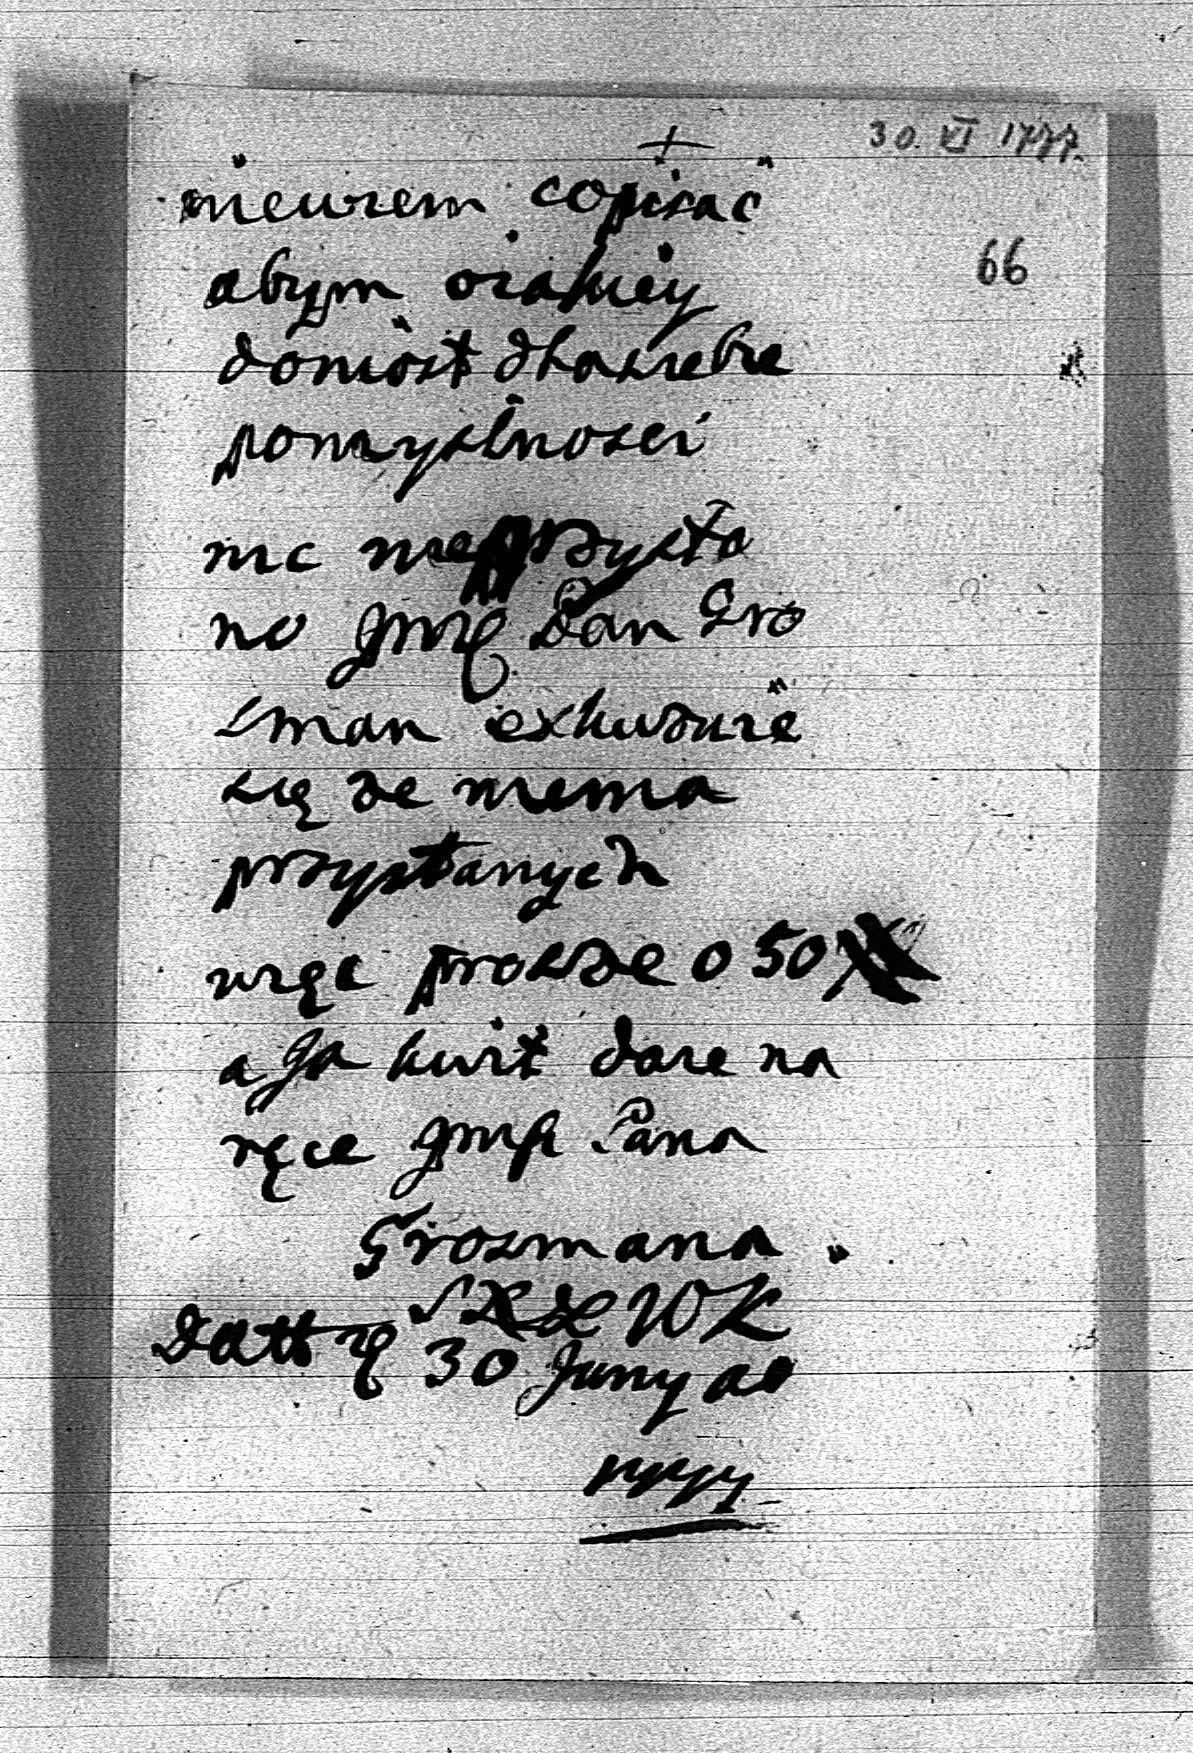 30. VI 1777.
+
niewiem copisac
66
abym oiakiey
doniosł dlasiebie
pomyslnosci
nic nieprzysła
no Jmę Pan Gro
sman exkuzuie
się ze niema
przysłanych
więc prosze o 50
a Ja kwit daie na
ręce Jmp Pana
Grosmana.
SX de WK
Datt 30 Juny ao
1777